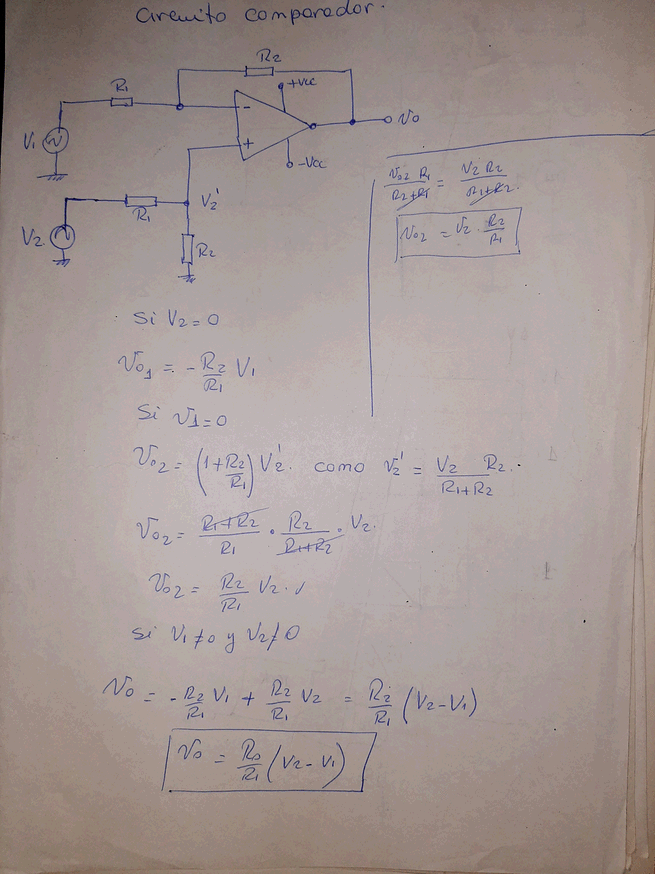 Circuito comparador.
R2
R1
+Vcc
-
V1
+
Vo
-Vcc
R1
V2'
V2
R2
Vo2 R1 / R2+R1 = V2 R2 / R1+R2.
Vo2 = V2 · R2/R1
Si V2 = 0
Vo1 = - R2/R1 V1
Si V1 = 0
Vo2 = (1+R2/R1) V2'. como V2' = V2 R2. / R1+R2
Vo2 = R1+R2 / R1 · R2 / R1+R2 · V2.
Vo2 = R2/R1 V2. √
Si V1 ≠ 0 y V2 ≠ 0
Vo = - R2/R1 V1 + R2/R1 V2 = R2/R1 (V2-V1)
Vo = Ro/R1 (V2-V1)